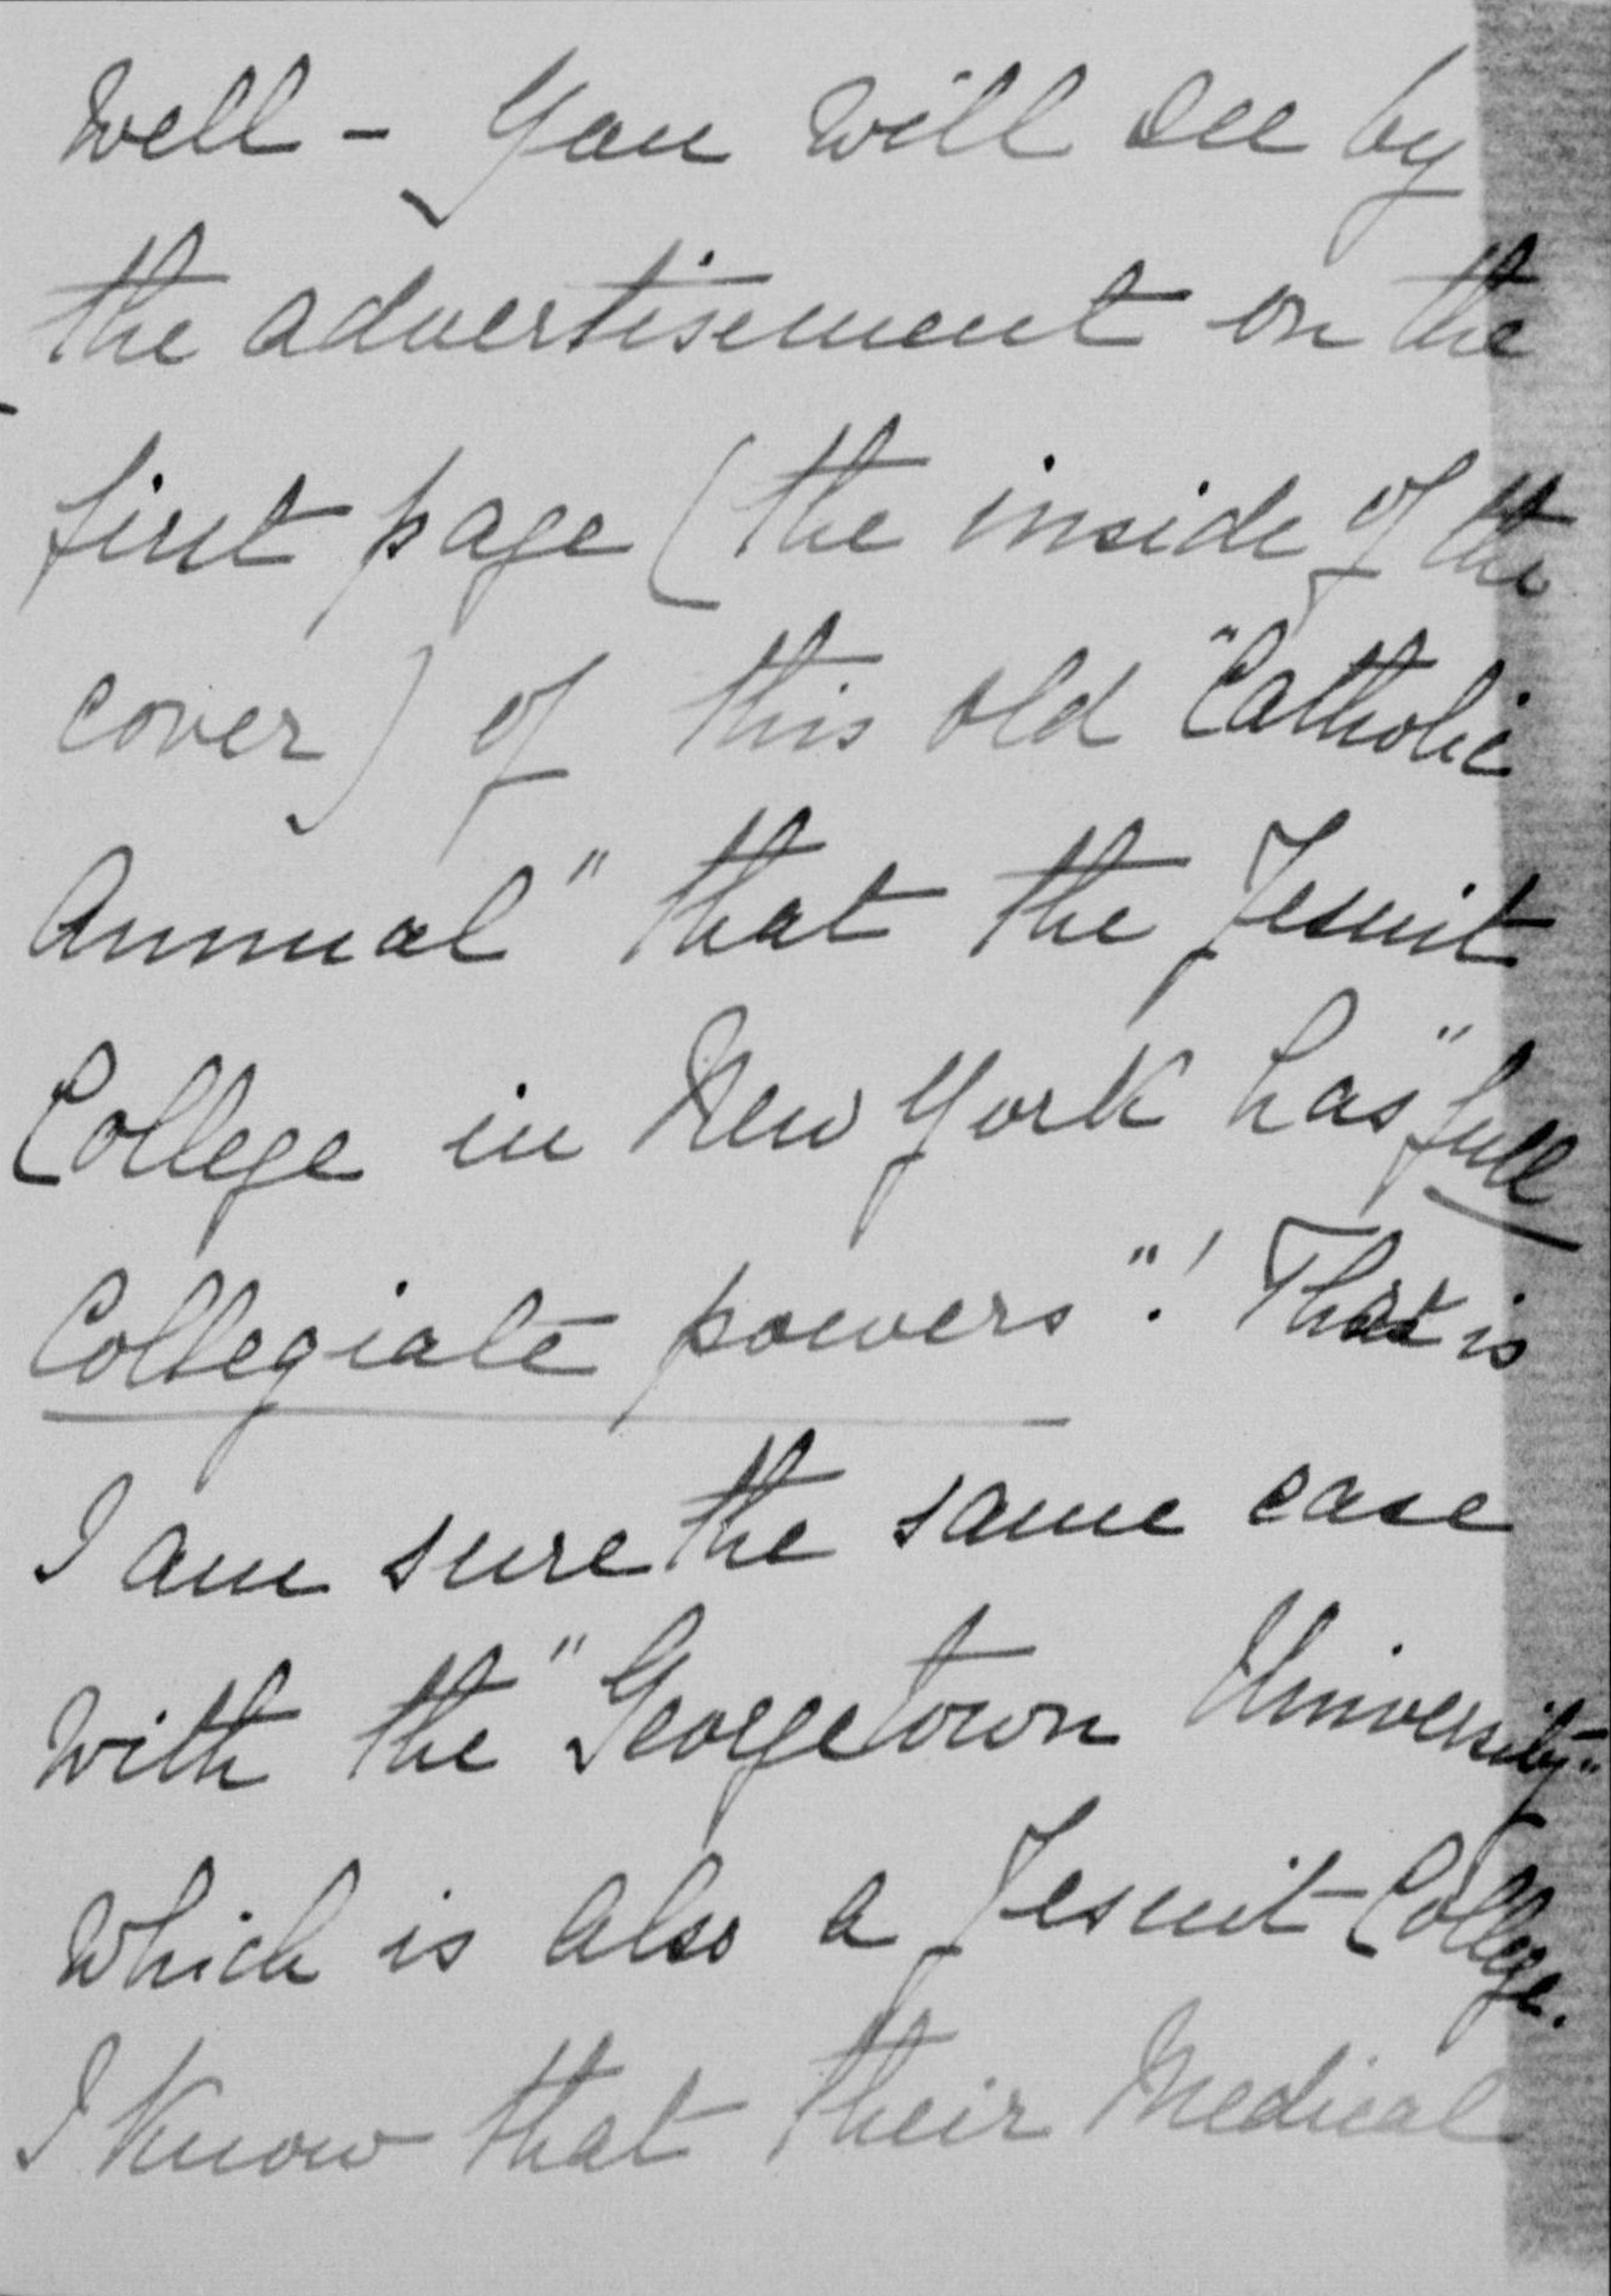 Well - You will see by
the advertisement on the
first page (the inside of the
cover) of this old "Catholic
Annual" that the Jesuit
College in New York has "full
Collegiate powers"! That is
I am sure the same case
with the "Georgetown University"
which is also a Jesuit College.
I know that their Medical